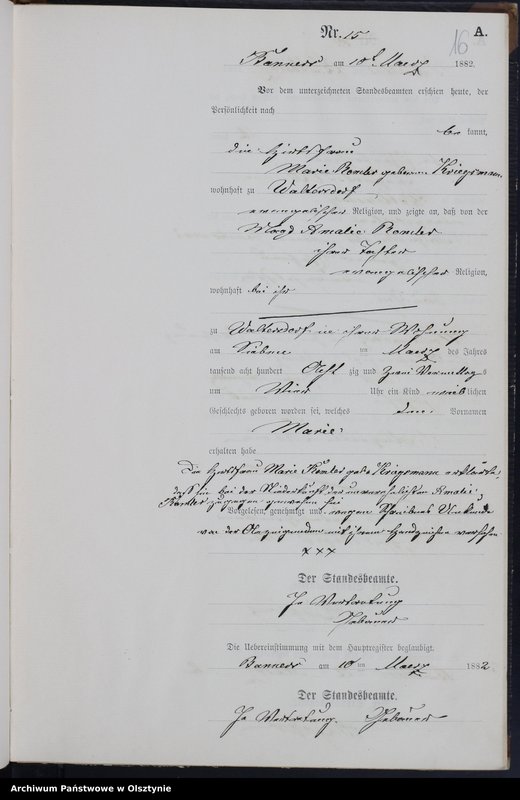 16
Nr. 15
A.
Banners am 10t Maerz 1882.
Vor dem unterzeichneten Standesbeamten erschien heute, der
Persönlichkeit nach
bekannt,
die Wirthsfrau
Marie Romler geborene Kriegsmann,
wohnhaft zu Waltersdorf
evangelischer Religion, und zeigte an, daß von der
Magd Amalie Romler
ihrer Tochter
evangelischer Religion,
wohnhaft bei ihr
zu Waltersdorf in ihrer Wohnung
am Sieben ten Maerz des Jahres
tausend acht hundert Acht zig und Zwei Vormittags
um Vier Uhr ein Kind weiblichen
Geschlechts geboren worden sei, welches den Vornamen
Marie
erhalten habe
Die Marie Romler geb. Kriegsmann erklärte,
daß sie bei der Niederkunft der unverehelichten Amalie
Romler zugegen gewesen sei
Vorgelesen, genehmigt und wegen Schreibens Unkunde
von der Anzeigenden mit ihrem Handzeichen versehen
xxx
Der Standesbeamte.
In Vertretung
Die Uebereinstimmung mit dem Hauptregister beglaubigt.
Banners am 10 ten Maerz 1882
Der Standesbeamte.
In Vertretung.
Archiwum Państwowe w Olsztynie